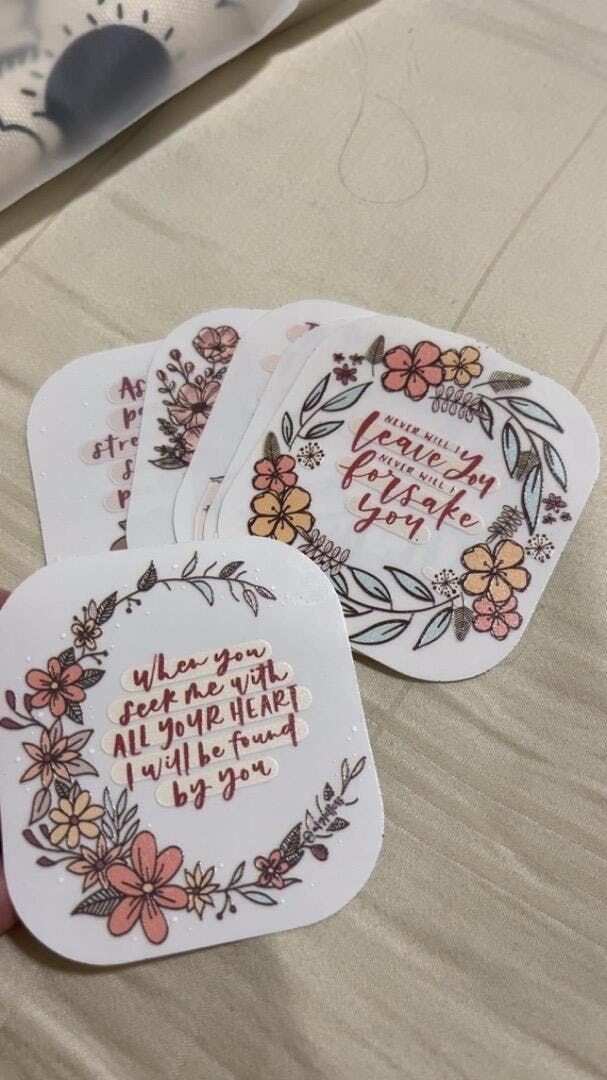 As
stre
NEVER WILL I
leave you
NEVER WILL I
forsake
you
When you
seek me with
ALL YOUR HEART
I will be found
by you